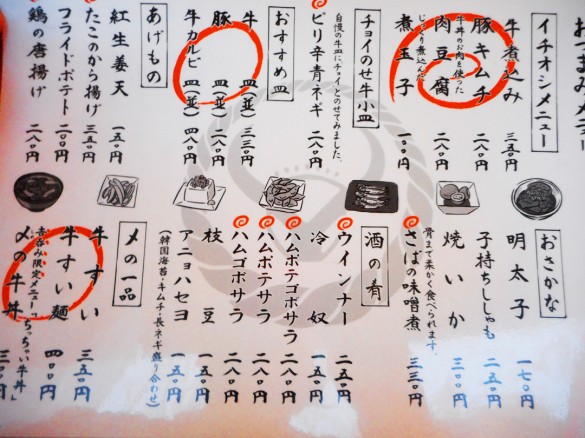 おつまみメニュー
イチオシメニュー
牛煮込み 三五〇円
豚キムチ 二八〇円
牛丼のお肉を使った
肉豆腐 二八〇円
じっくり煮込んだ
煮玉子 一〇〇円
チョイのせ牛小皿
自慢の牛皿にチョイとのせてみました。
ピリ辛青ネギ 二八〇円
おすすめ皿
牛 皿(並) 三三〇円
豚 皿(並)
牛カルビ 皿(並) 四〇〇円
あげもの
紅生姜天 一五〇円
たこのから揚げ 三五〇円
フライドポテト 二〇〇円
鶏の唐揚げ 二八〇円
おさかな
明太子 一七〇円
子持ちししゃも 二五〇円
焼いか 三〇〇円
骨まで柔かく食べられます。
さばの味噌煮 三三〇円
酒の肴
ウインナー 二五〇円
冷奴 一五〇円
ハムポテゴボサラ 二八〇円
ハムポテサラ 二八〇円
ハムゴボサラ 二八〇円
枝豆 一五〇円
アニョハセヨ 一五〇円
(韓国海苔・キムチ・長ネギ盛り合わせ)
〆の一品
牛すい 三五〇円
牛すい麺 四〇〇円
吉呑み限定メニュー「ちっちゃい牛丼」
〆の牛丼 三〇〇円